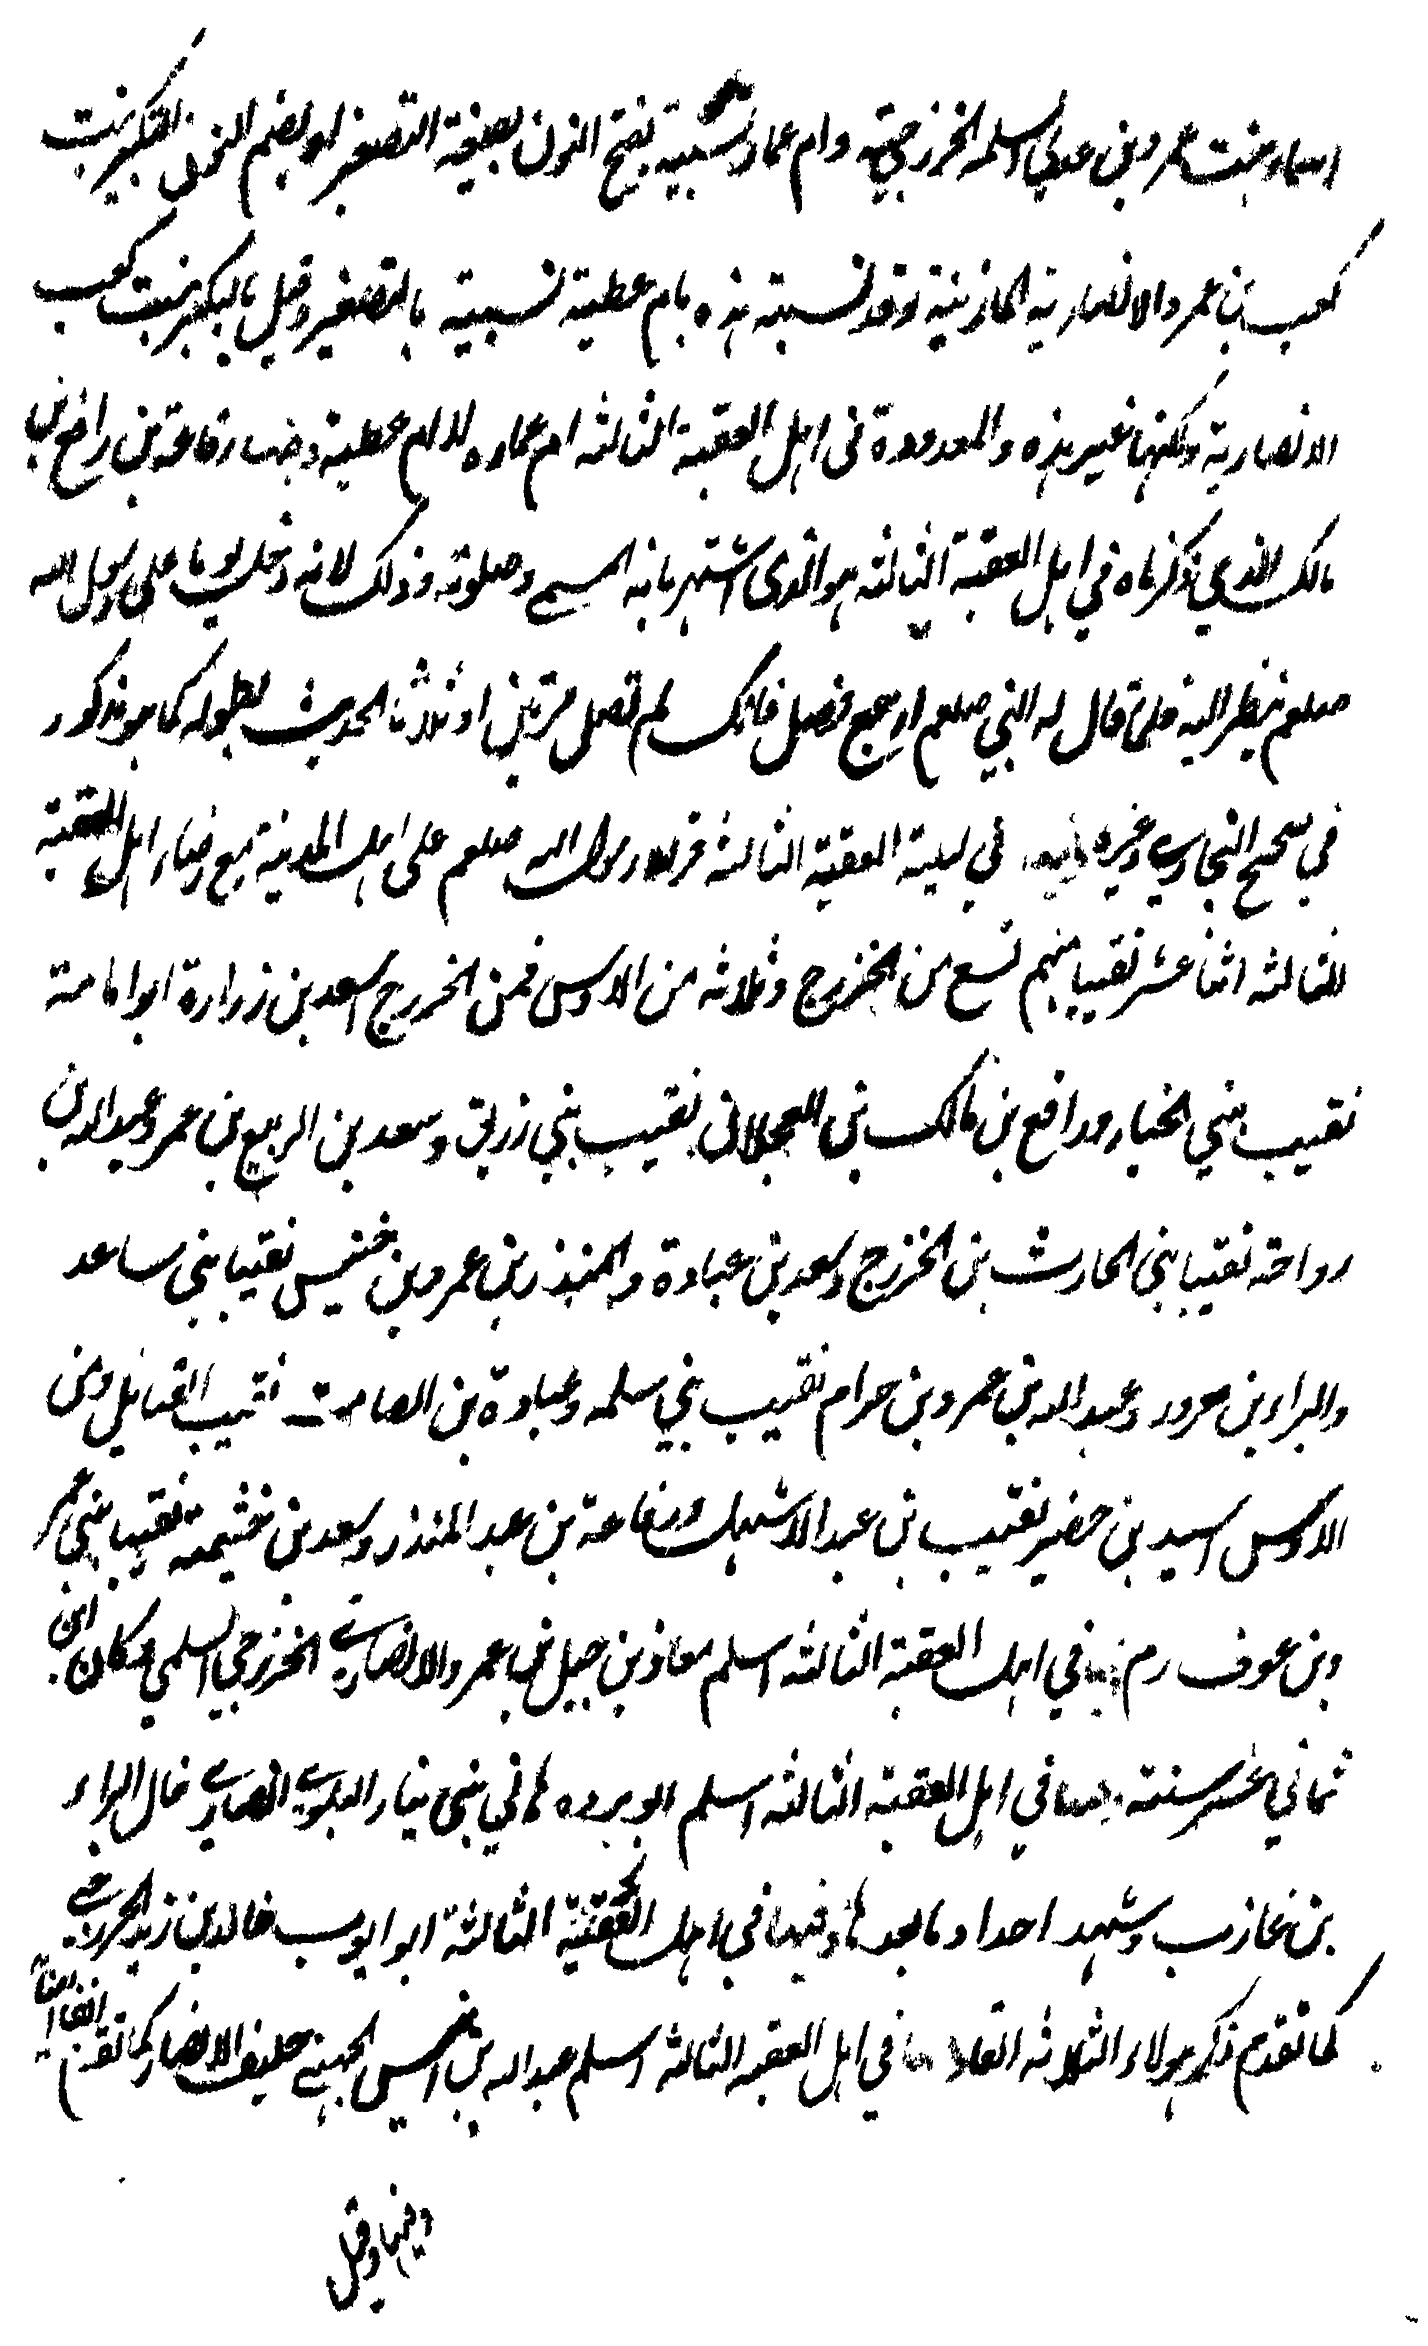 اسماء بنت عمرو بن عدي السلمه الخزرجية وام عماره نسيبة بفتح النون بصيغة التصغير او بضم النون لتكبير بنت
كعب بن عمرو الانصارية المازنية وقد نسبته هذه بام عطية نسيبة بالتصغير وقيل بالتكبير بنت كعب
الانصارية ولكنها غير هذه والمعدودة في اهل العقبة الثالثه ام عماره لا ام عطية رفاعة بن رافع بن
مالك الذي ذكرناه في اهل العقبة الثالثه هو الذي اشتهر بانه المسي وصلوته وذلك لانه دخل يوما على رسول الله
صلعم ينظر اليه فلما قال له النبي صلعم ارجع فصل فانك لم تصل مرتين او ثلاثا الحديث بطوله كما هو مذكور
في صحيح البخاري وغيره في ليلة العقبة الثالثة قرر رسول الله صلعم على اهل المدينة مع رضاء اهل العقبة
الثالثه اثنا عشر نقيبا منهم تسع من الخزرج وثلاثه من الاوس فمن الخزرج اسعد بن زرارة ابو امامة
نقيب بني النجار ورافع بن مالك بن العجلان نقيب بني زريق وسعد بن الربيع بن عمر وعبد الله بن
رواحة نقيبا بني الحارث بن الخزرج وسعد بن عبادة والمنذر بن عمرو بن خنيس نقيبا بني ساعد
والبراء بن معرور وعبد الله بن عمرو بن حرام نقيب بني سلمه وعبادة بن الصامت نقيب القبايل ومن
الاوس اسيد بن حضير نقيب بن عبد الاشهل ورفاعة بن عبد المنذر وسعد بن خثيمة نقيبا بني عمر
وبن عوف رم في اهل العقبة الثالثه اسلم معاذ بن جبل بن عمرو الانصاري الخزرجي السلمي وكان ابن
ثماني عشر سنة وفيها في اهل العقبة الثالثه اسلم ابو برده هاني بن نيار البلوي انصاري خال البراء
بن عازب وشهد احدا وما بعدها وفيها في اهل العقبة الثالثة ابو ايوب خالد بن زيد الخزرجي
كما تقدم ذكر هولاء الثلاثه انفا وفيها في اهل العقبه الثالثه اسلم عبد الله بن انيس الجهني حليف الانصار كما تقدم انفا
وفيها وقيل